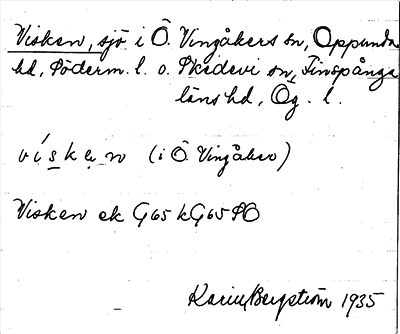 Visken, sjö i Ö. Vingåkers sn, Oppunda
hd, Söderm. l. o. Skedevi sn, Finspånga
läns hd, Ög. l.
vísken (i Ö. Vingåker)
Visken ek G65 kG65 SO
Karin Bergström 1935